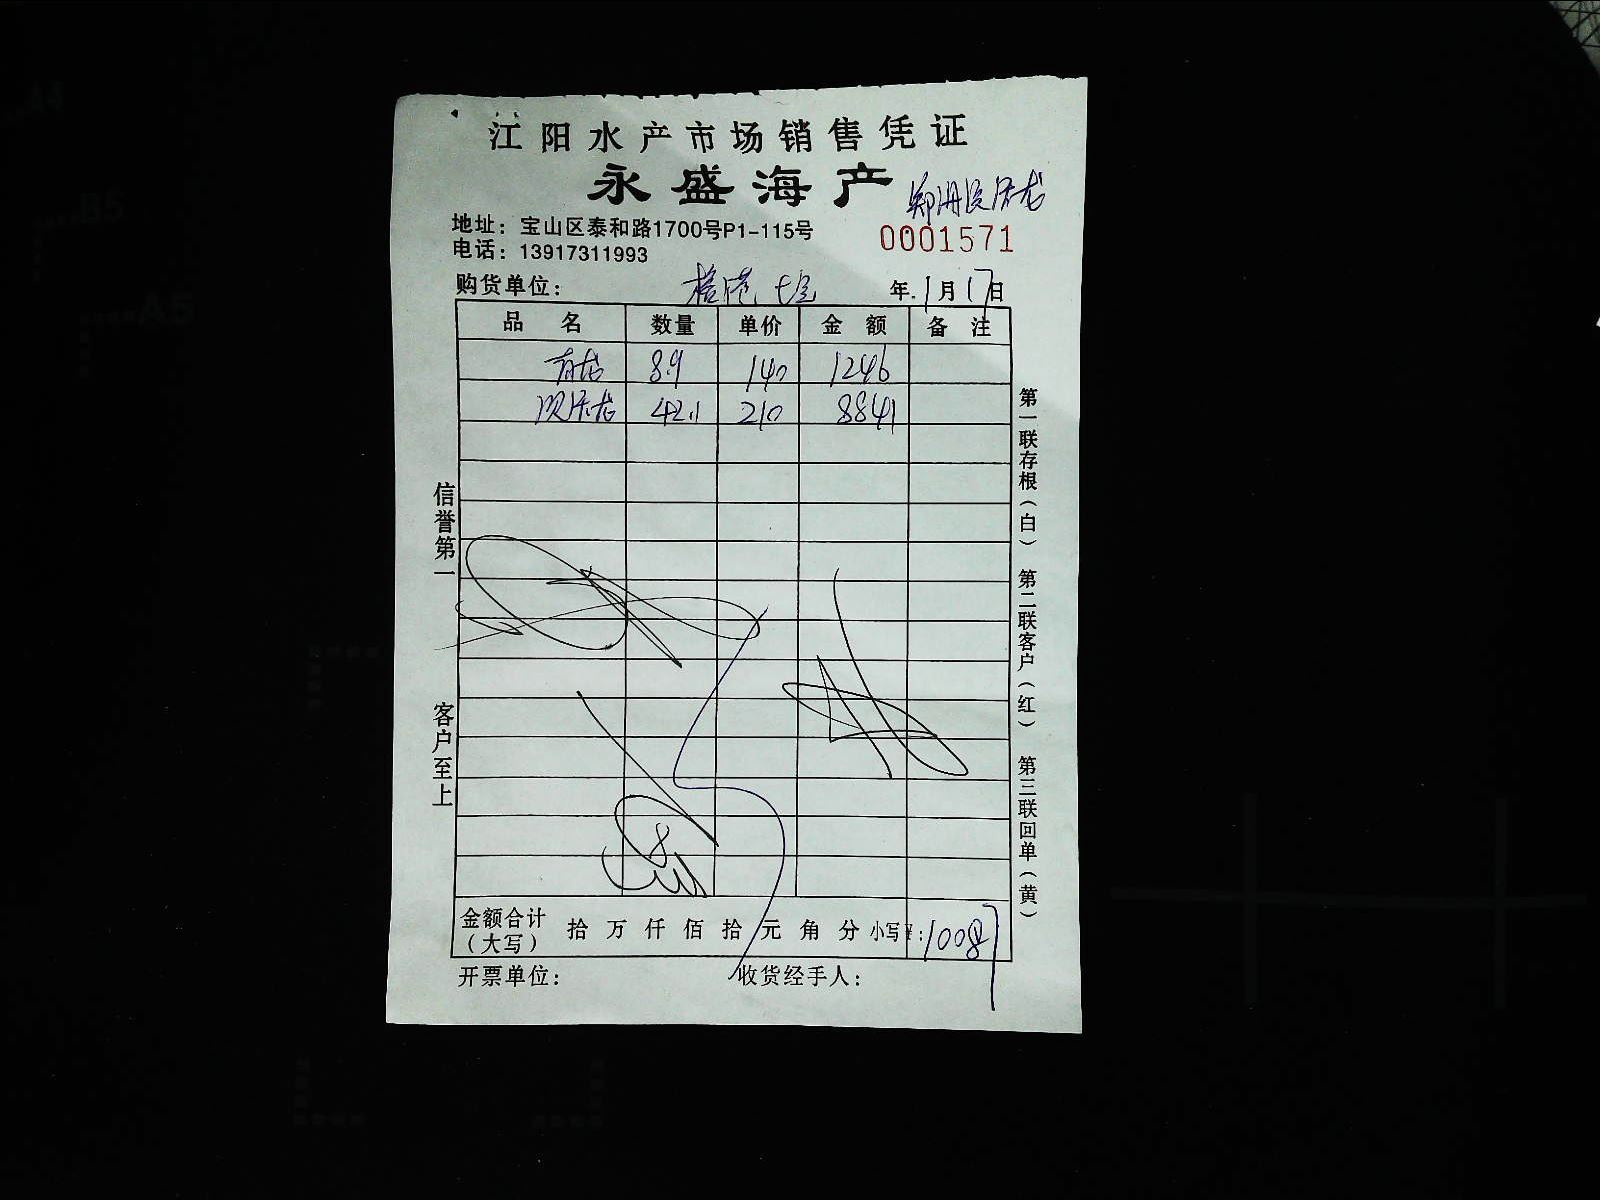 江阳水产市场销售凭证
永盛海产
地址：宝山区泰和路1700号P1-115号
0001571
电话：13917311993
购货单位： 年 1月17日
品 名 数量 单价 金 额 备 注
青龙 8.9 140 1246
42.1 210 8841
信誉第一
客户至上
第一联存根（白） 第二联客户（红） 第三联回单（黄）
金额合计（大写） 拾 万 仟 佰 拾 元 角 分 小写￥：10087
开票单位： 收货经手人：